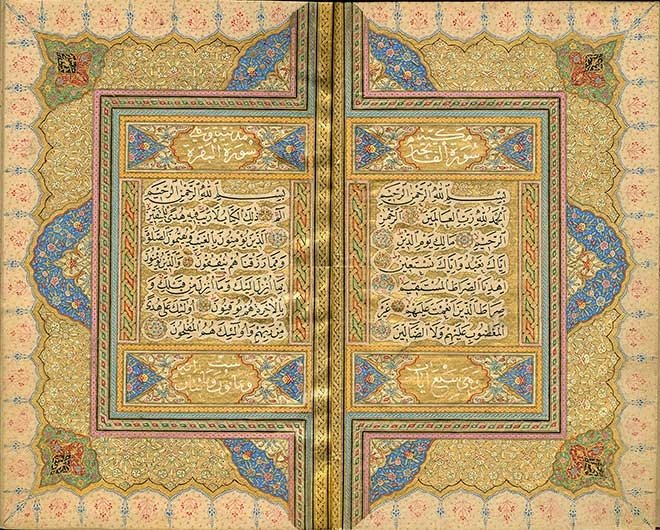 سُورَةُ الْفَاتِحَةِ
بِسْمِ اللهِ الرَّحْمٰنِ الرَّحِيمِ
اَلْحَمْدُ لِلّٰهِ رَبِّ الْعَالَمِينَ الرَّحْمٰنِ
الرَّحِيمِ مَالِكِ يَوْمِ الدِّينِ
اِيَّاكَ نَعْبُدُ وَاِيَّاكَ نَسْتَعِينُ
اِهْدِنَا الصِّرَاطَ الْمُسْتَقِيمَ
صِرَاطَ الَّذِينَ اَنْعَمْتَ عَلَيْهِمْ غَيْرِ
الْمَغْضُوبِ عَلَيْهِمْ وَلَا الضَّالِّينَ
وهي سبع آيات
سُورَةُ الْبَقَرَةِ
بِسْمِ اللهِ الرَّحْمٰنِ الرَّحِيمِ
الم ذٰلِكَ الْكِتَابُ لَا رَيْبَ فِيهِ هُدًى لِلْمُتَّقِينَ
الَّذِينَ يُؤْمِنُونَ بِالْغَيْبِ وَيُقِيمُونَ الصَّلٰوةَ
وَمِمَّا رَزَقْنَاهُمْ يُنْفِقُونَ وَالَّذِينَ يُؤْمِنُونَ
بِمَا اُنْزِلَ اِلَيْكَ وَمَا اُنْزِلَ مِنْ قَبْلِكَ وَ
بِالْاٰخِرَةِ هُمْ يُوقِنُونَ اُولٰئِكَ عَلٰى هُدًى
مِنْ رَبِّهِمْ وَاُولٰئِكَ هُمُ الْمُفْلِحُونَ
وثمانون ومائتان